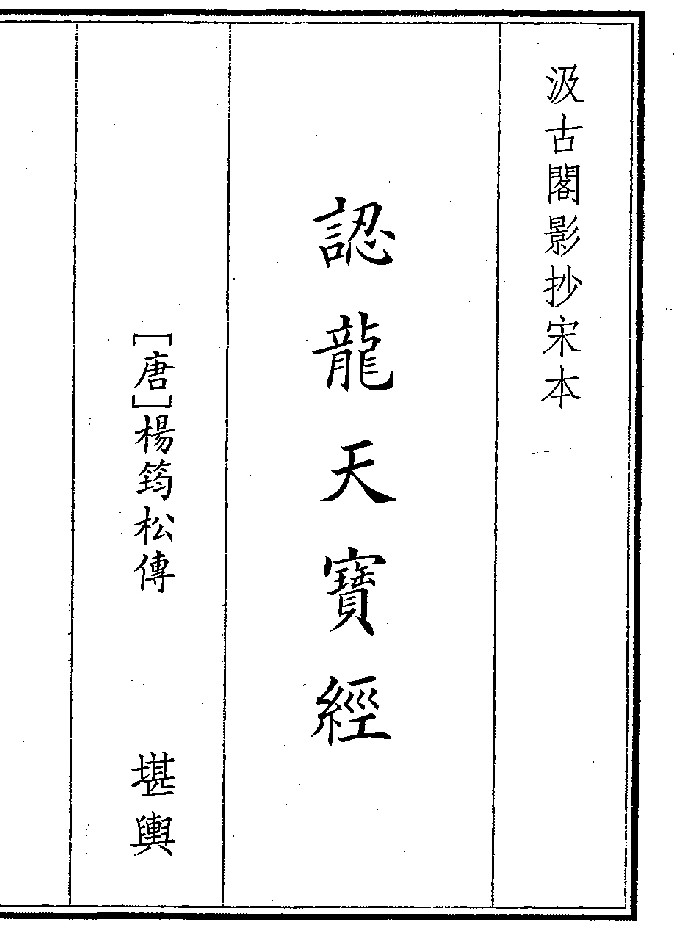 汲古閣影抄宋本
認龍天寶經
[唐]楊筠松傳 堪輿